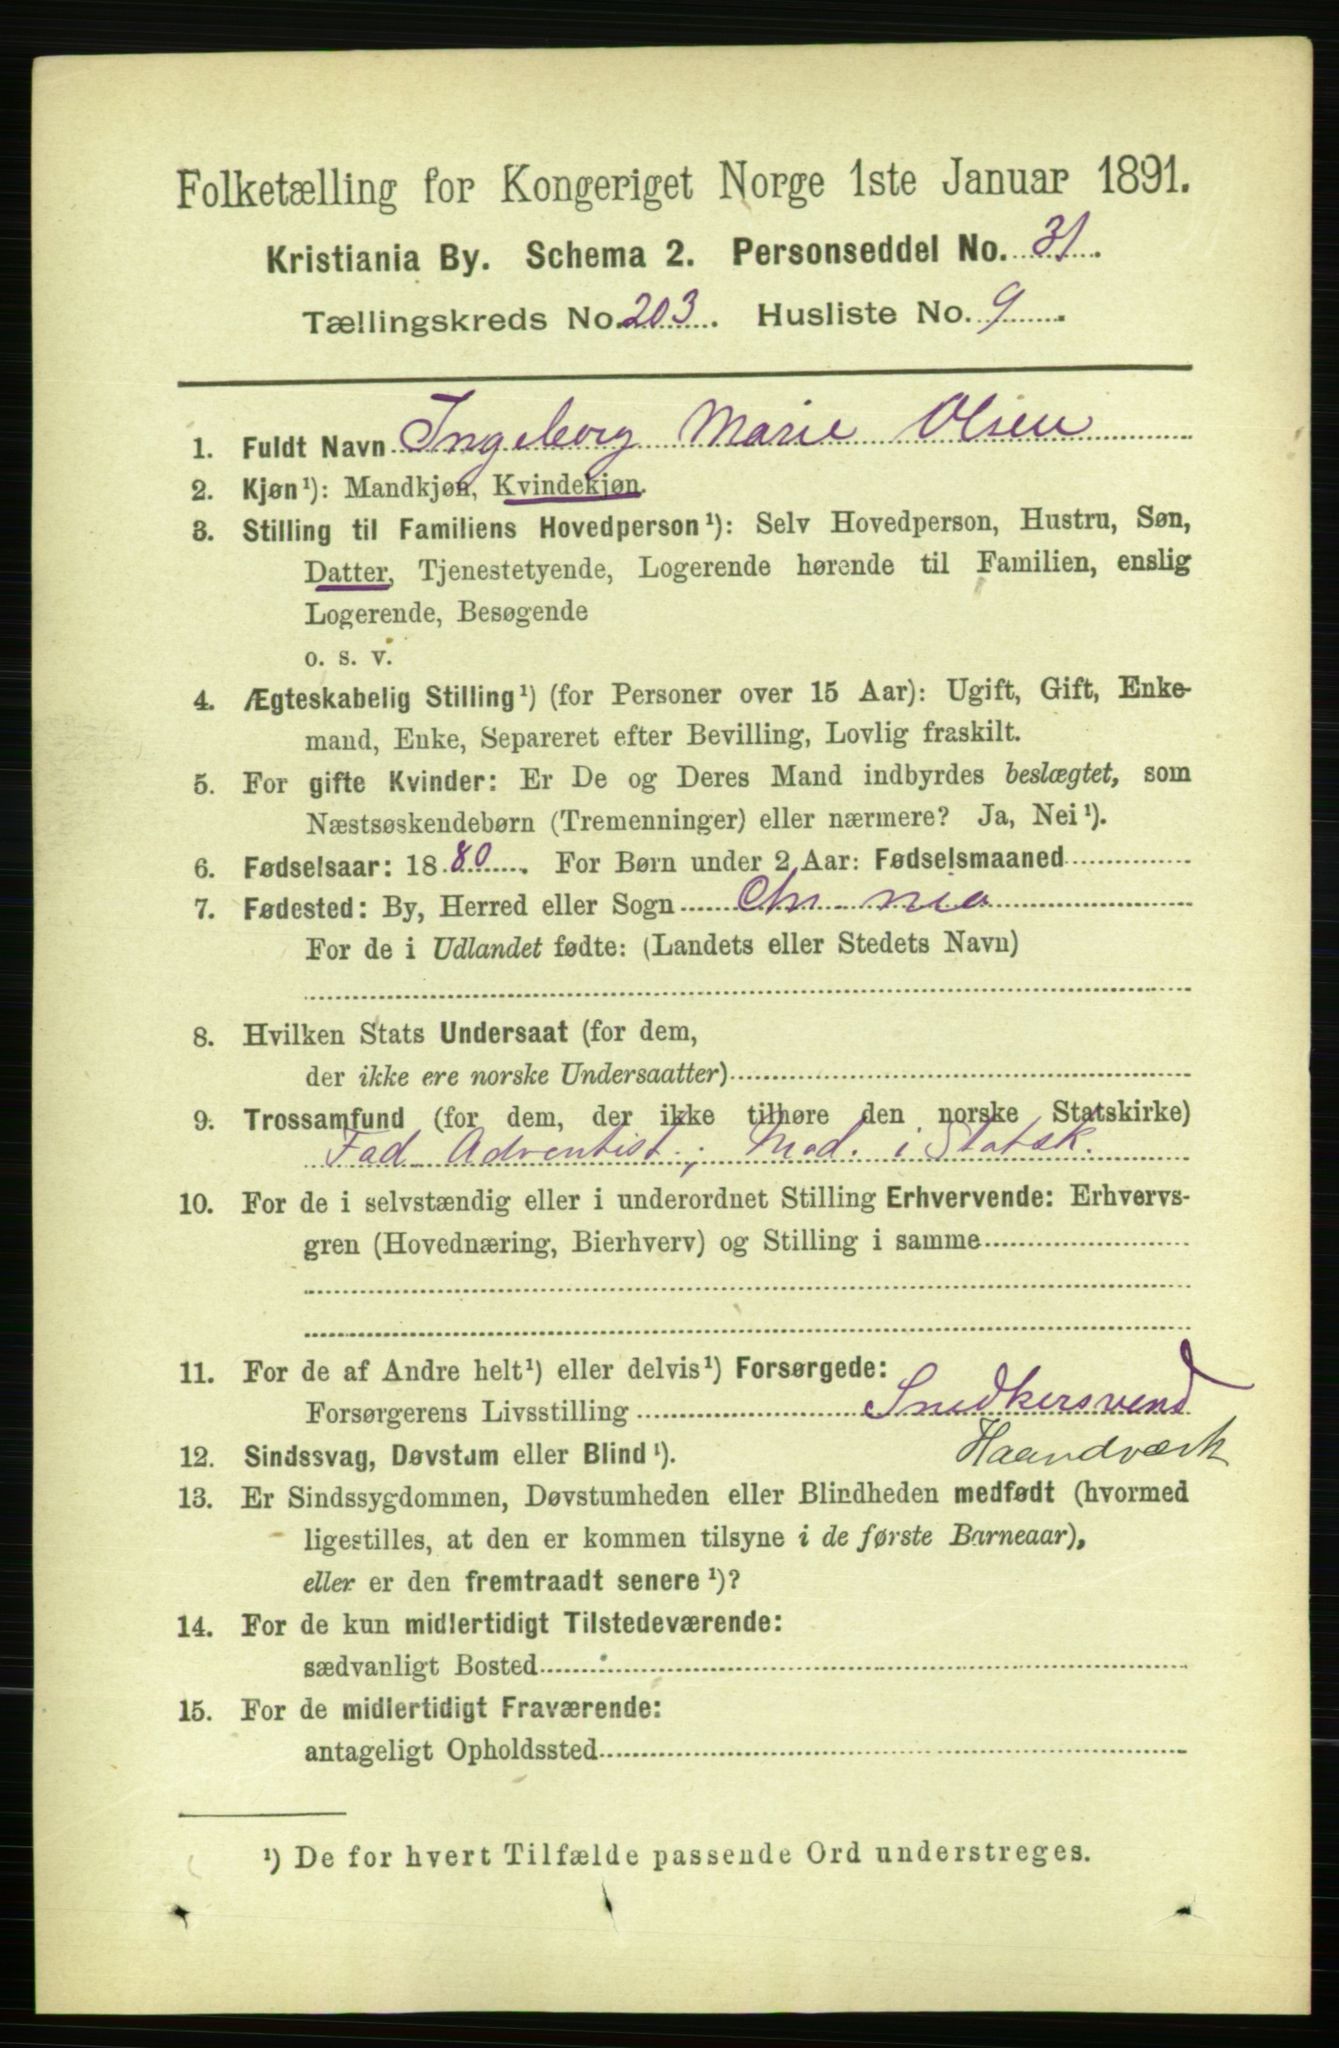 Folketælling for Kongeriget Norge 1ste Januar 1891.
Kristiania By. Schema 2. Personseddel No. 31.
Tællingskreds No. 203. Husliste No. 9.
1. Fuldt Navn Ingeborg Marie Olsen
2. Kjøn¹): Mandkjøn, Kvindekjøn.
3. Stilling til Familiens Hovedperson¹): Selv Hovedperson, Hustru, Søn,
Datter, Tjenestetyende, Logerende hørende til Familien, enslig
Logerende, Besøgende
o. s. v.
4. Ægteskabelig Stilling¹) (for Personer over 15 Aar): Ugift, Gift, Enke-
mand, Enke, Separeret efter Bevilling, Lovlig fraskilt.
5. For gifte Kvinder: Er De og Deres Mand indbyrdes beslægtet, som
Næstsøskendebørn (Tremenninger) eller nærmere? Ja, Nei¹).
6. Fødselsaar: 1880. For Børn under 2 Aar: Fødselsmaaned
7. Fødested: By, Herred eller Sogn Chr nia
For de i Udlandet fødte: (Landets eller Stedets Navn)
8. Hvilken Stats Undersaat (for dem,
der ikke ere norske Undersaatter)
9. Trossamfund (for dem, der ikke tilhøre den norske Statskirke)
Fad. Adventist; Mod. i Statsk.
10. For de i selvstændig eller i underordnet Stilling Erhvervende: Erhvervs-
gren (Hovednæring, Bierhverv) og Stilling i samme
11. For de af Andre helt¹) eller delvis¹) Forsørgede:
Forsørgerens Livsstilling Snedkersvend
Haandværk
12. Sindssvag, Døvstum eller Blind¹).
13. Er Sindssygdommen, Døvstumheden eller Blindheden medfødt (hvormed
ligestilles, at den er kommen tilsyne i de første Barneaar),
eller er den fremtraadt senere¹)?
14. For de kun midlertidigt Tilstedeværende:
sædvanligt Bosted
15. For de midlertidigt Fraværende:
antageligt Opholdssted
¹) De for hvert Tilfælde passende Ord understreges.